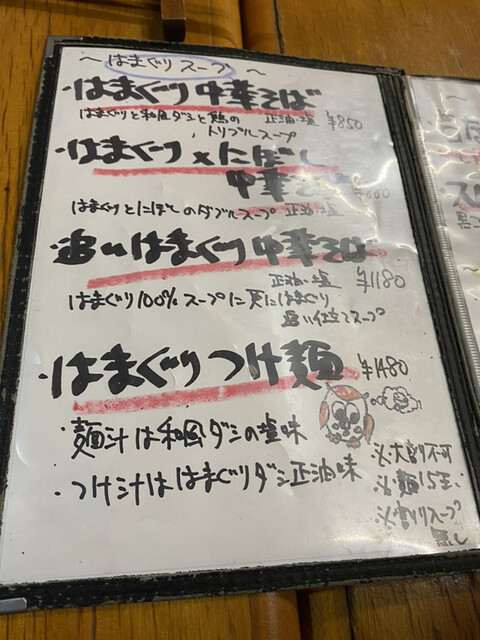 ～はまぐりスープ～
・はまぐり中華そば
はまぐりと和風ダシと鶏の 正油・塩 ¥850
トリプルスープ
・はまぐり×にぼし
中華そば
はまぐりとにぼしのダブルスープ 正油・塩
・追いはまぐり中華そば
正油・塩 ¥1180
はまぐり100%スープに更にはまぐり
追い仕立てスープ
・はまぐりつけ麺 ¥1480
・麺汁は和風ダシの塩味
・つけ汁ははまぐりダシ正油味
※大割不可
※麺1.5玉
※割りスープ
無し